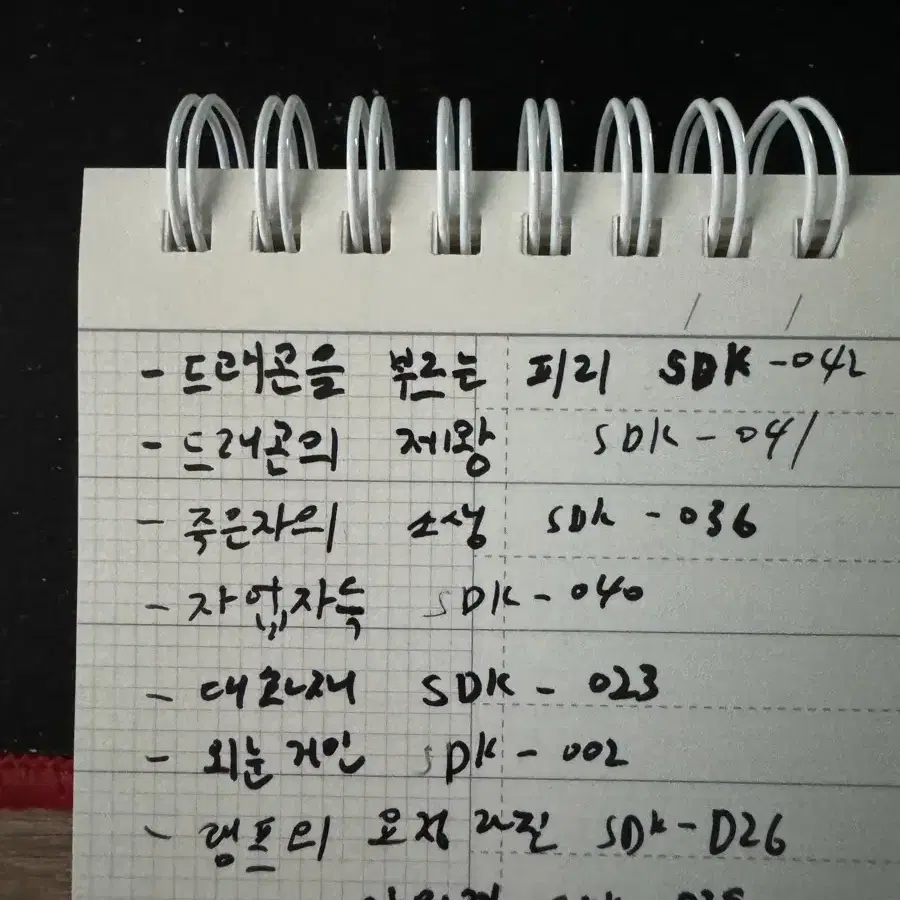 - 드래곤을 부르는 피리 SDK-042
- 드래곤의 제왕 SDK-041
- 죽은자의 소생 SDK-036
- 자업자득 SDK-040
- 대혼란 SDK-023
- 외눈거인 SDK-002
- 램프의 요정 라진 SDK-D26